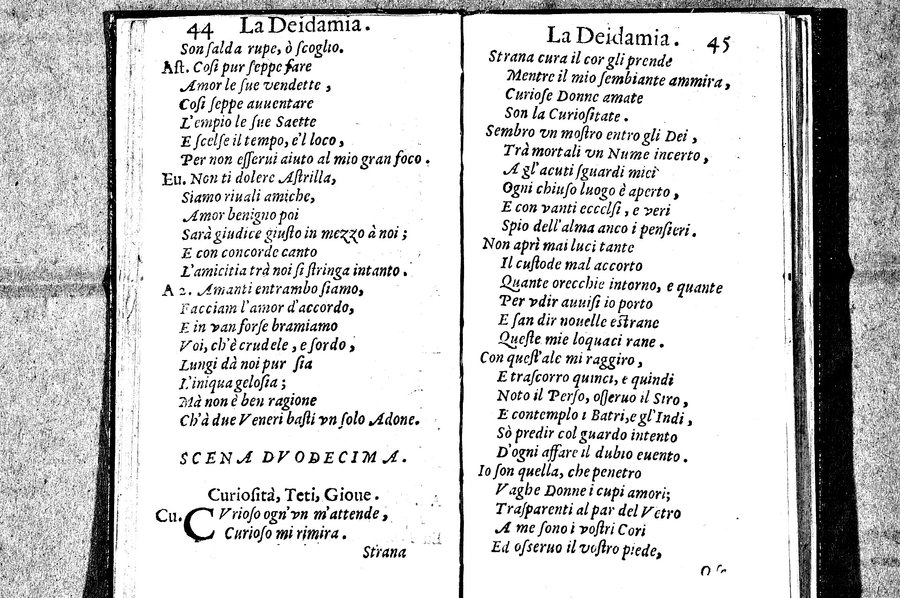 44 La Deidamia.
Son salda rupe, ò scoglio.
Ast. Così pur seppe fare
Amor le sue vendette,
Così seppe auuentare
L'empio le sue Saette
E scelse il tempo, e'l loco,
Per non esserui aiuto al mio gran foco.
Eu. Non ti dolere Astrilla,
Siamo riuali amiche,
Amor benigno poi
Sarà giudice giusto in mezzo à noi;
E con concorde canto
L'amicitia trà noi si stringa intanto.
A 2. Amanti entrambo siamo,
Facciam l'amor d'accordo,
E in van forse bramiamo
Voi, ch'è crudele, e sordo,
Lungi dà noi pur sia
L'iniqua gelosia;
Mà non è ben ragione
Ch'à due Veneri basti vn solo Adone.
SCENA DVODECIMA.
Curiosità, Teti, Gioue.
Cu. CVrioso ogn'vn m'attende,
Curioso mi rimira.
Strana
La Deidamia. 45
Strana cura il cor gli prende
Mentre il mio sembiante ammira,
Curiose Donne amate
Son la Curiositate.
Sembro vn mostro entro gli Dei,
Trà mortali vn Nume incerto,
A gl'acuti sguardi miei
Ogni chiuso luogo è aperto,
E con vanti eccelsi, e veri
Spio dell'alma anco i pensieri.
Non aprì mai luci tante
Il custode mal accorto
Quante orecchie intorno, e quante
Per vdir auuisi io porto
E san dir nouelle estrane
Queste mie loquaci rane.
Con quest'ale mi raggiro,
E trascorro quinci, e quindi
Noto il Perso, osseruo il Siro,
E contemplo i Batri, e gl'Indi,
Sò predir col guardo intento
D'ogni affare il dubio euento.
Io son quella, che penetro
Vaghe Donne i cupi amori;
Trasparenti al par del Vetro
A me sono i vostri Cori
Ed osseruo il vostro piede,